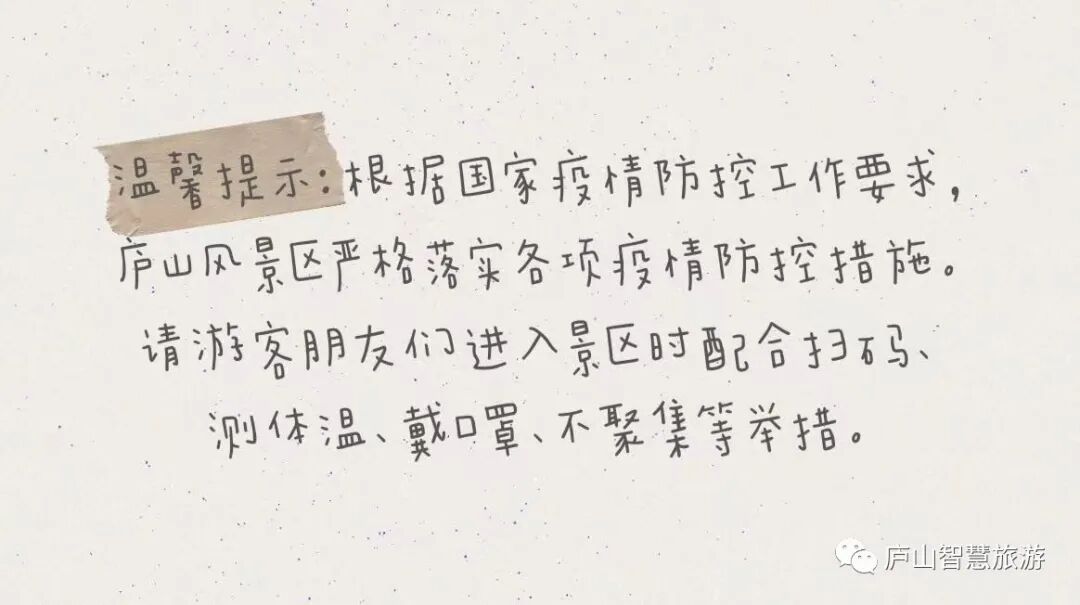 温馨提示:根据国家疫情防控工作要求,
庐山风景区严格落实各项疫情防控措施。
请游客朋友们进入景区时配合扫码、
测体温、戴口罩、不聚集等举措。
庐山智慧旅游